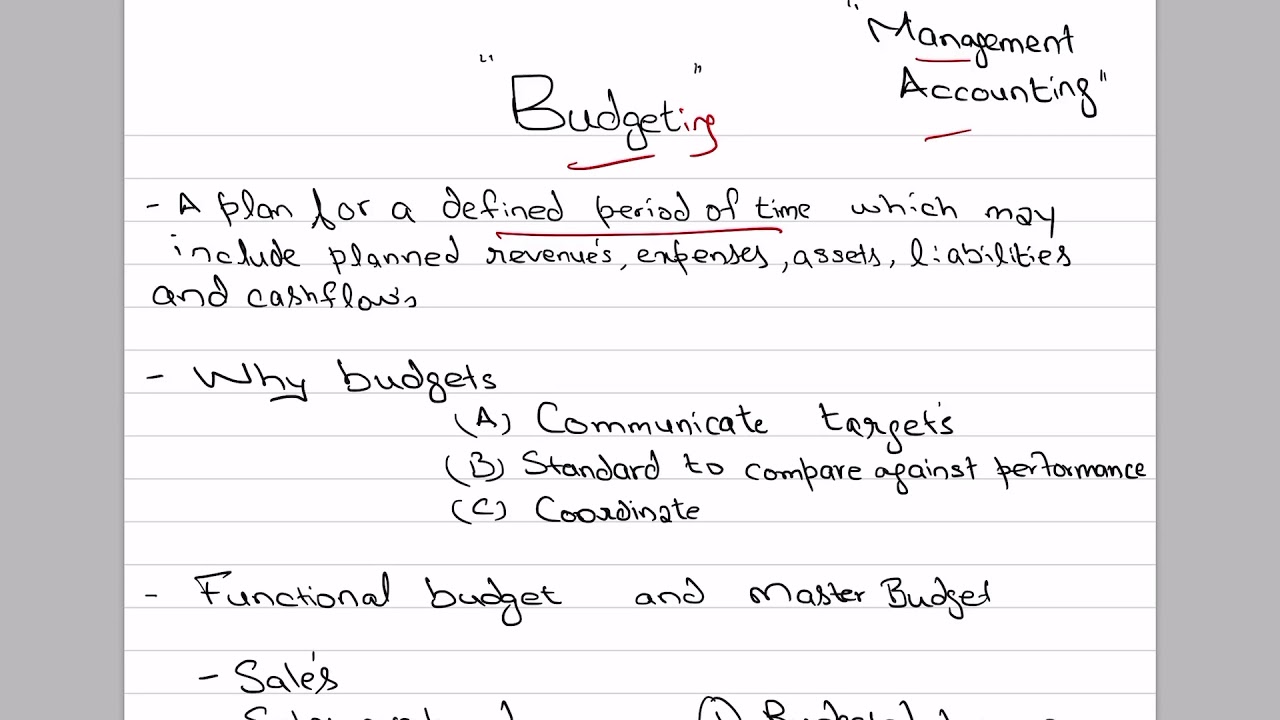 "Management
Accounting"
"Budgeting"
- A plan for a defined period of time which may
include planned revenue's, expenses, assets, liabilities
and cashflows
- Why budgets
(A) Communicate target's
(B) Standard to compare against performance
(C) Coordinate
- Functional budget and Master Budget
- Sale's
(1)